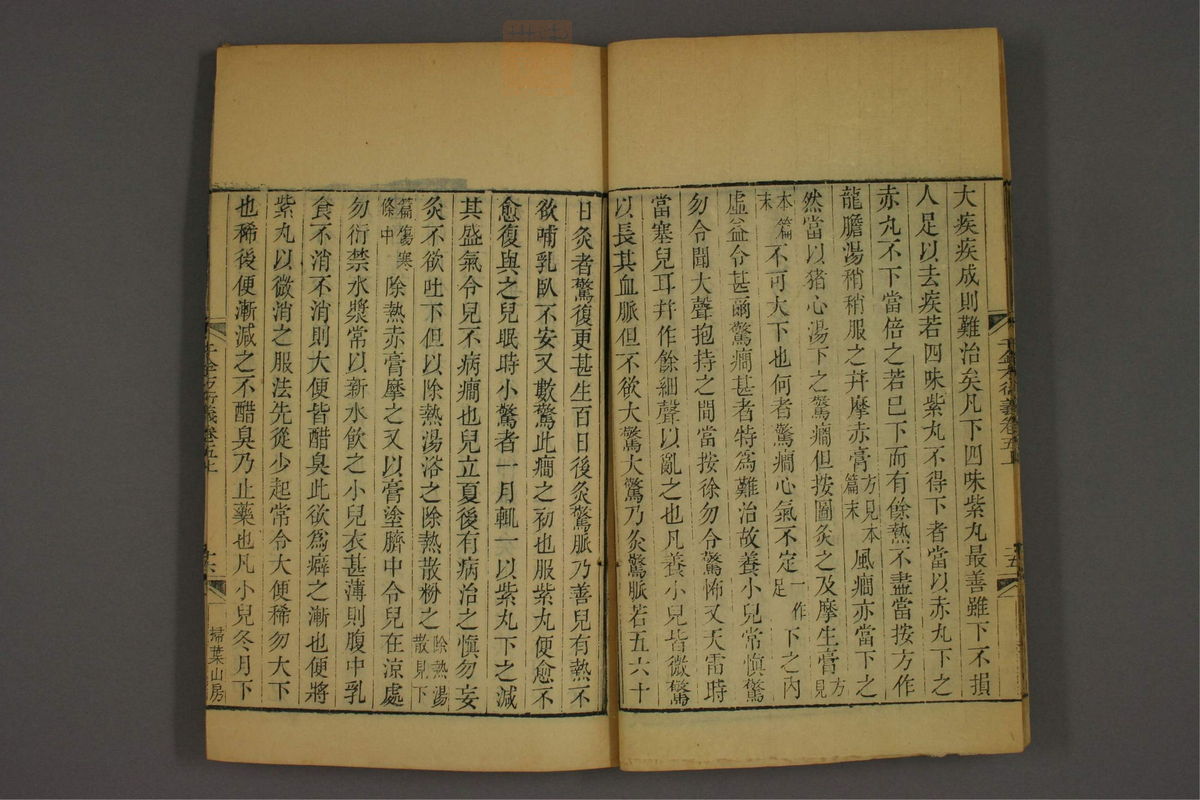 大疾疾成則難治矣凡下四味紫丸最善雖下不損
人足以去疾若四味紫丸不得下者當以赤丸下之
赤丸不下當倍之若已下而有餘熱不盡當按方作
龍膽湯稍稍服之幷摩赤膏方見本篇末風癎亦當下之
然當以猪心湯下之驚癎但按圖灸之及摩生膏方見
本篇末不可大下也何者驚癎心氣不定一作足下之內
虛益令甚爾驚癎甚者特爲難治故養小兒常愼驚
勿令聞大聲抱持之間當按徐勿令驚怖又天雷時
當塞兒耳幷作餘細聲以亂之也凡養小兒皆微驚
以長其血脈但不欲大驚大驚乃灸驚脈若五六十
千金方衍義卷五上
十五
日灸者驚復更甚生百日後灸驚脈乃善兒有熱不
欲哺乳臥不安又數驚此癎之初也服紫丸便愈不
愈復與之兒眠時小驚者一月輒一以紫丸下之減
其盛氣令兒不病癎也兒立夏後有病治之愼勿妄
灸不欲吐下但以除熱湯浴之除熱散粉之除熱湯散見下
篇傷寒條中除熱赤膏摩之又以膏塗臍中令兒在涼處
勿衍禁水漿常以新水飲之小兒衣甚薄則腹中乳
食不消不消則大便皆醋臭此欲爲癖之漸也便將
紫丸以微消之服法先從少起常令大便稀勿大下
也稀後便漸減之不醋臭乃止藥也凡小兒冬月下
千金方衍義卷五上
十六
掃葉山房